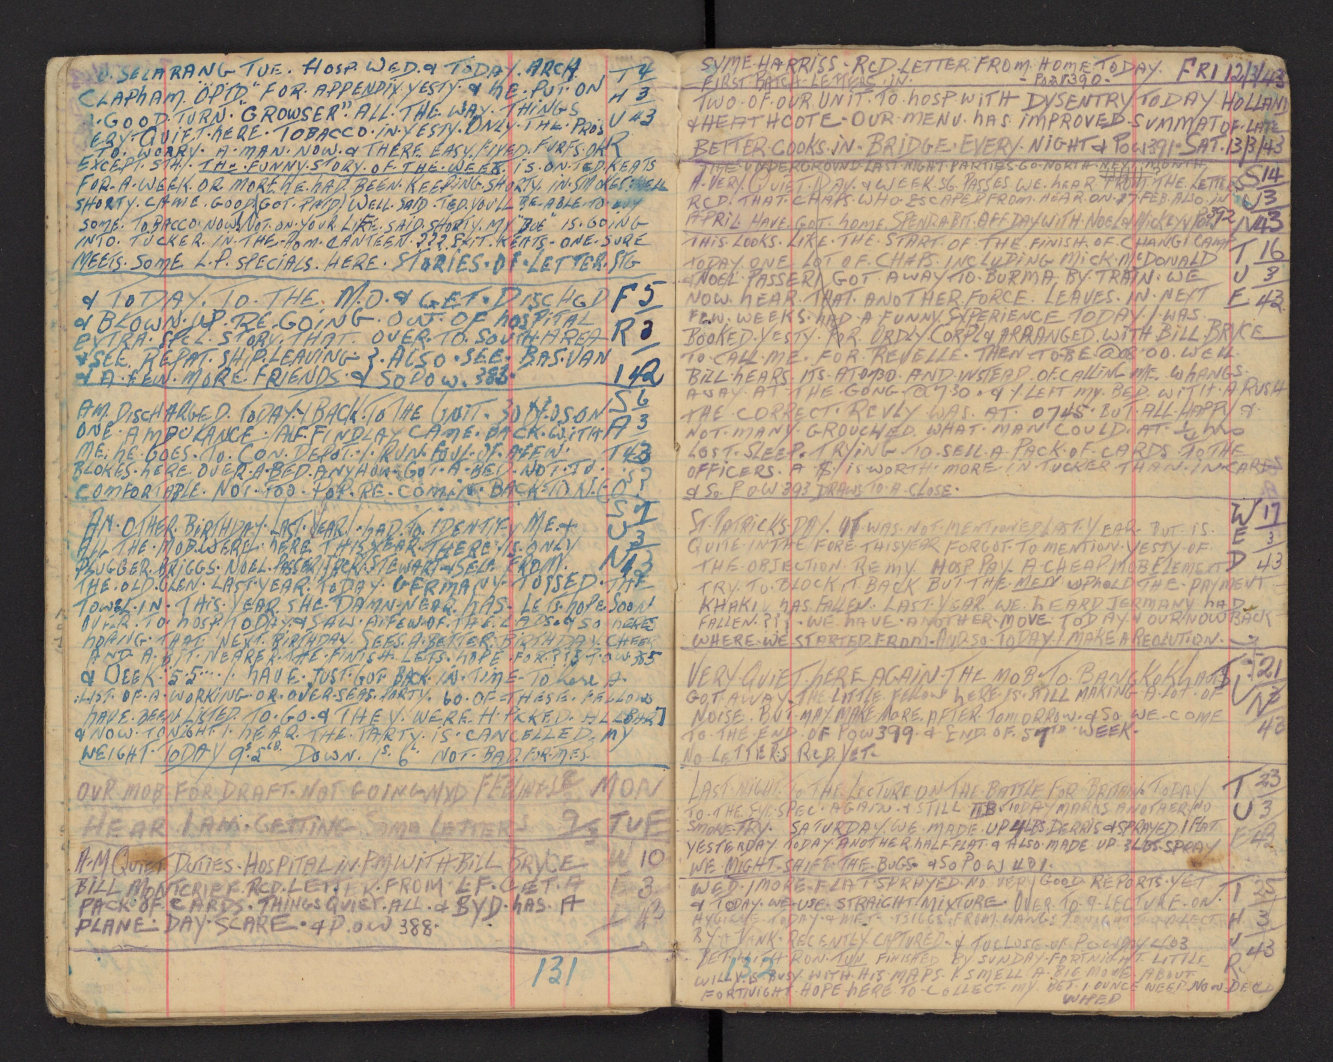 SELARANG TUE. HOSP. WED. & TODAY. ARCH T 4
CLAPHAM "OPTD" FOR APPENDIX YESTY & HE. PUT ON H 3
A. GOOD. TURN. "GROWSER" ALL. THE. WAY. THINGS U 43
ERY. QUIET. HERE. TOBACCO. IN. YESTY. ONLY. THE. PROS R
TO. WORRY. A. MAN. NOW. & THERE. EASY. FIXED.
EXCEPT. 5TH. THE. FUNNY. STORY. OF THE. WEEK IS. ON. TED. KEATS
FOR. A. WEEK. OR MORE. HE. HAD. BEEN. KEEPING. SHORTY. IN. SMOKES. WELL
SHORTY. CAME. GOOD (GOT. PAID) WELL. SAID. TED. YOU'LL BE. ABLE. TO. BUY
SOME. TOBACCO. NOW. NOT. ON. YOUR. LIFE. SAID. SHORTY. MY IS. GOING
INTO. TUCKER. IN. THE. CANTEEN. ??? EXIT. KEATS - ONE. SURE
MEETS. SOME L.P. SPECIALS. HERE. STORIES. OF. LETTER. STG
& TODAY. TO. THE. M.O. & GET. DISCHGD F 5
& BLOWN. UP. RE. GOING OUT. OF HOSPITAL R 3
EXTRA. SPCL. STORY. THAT. OVER. TO. SOUTH. AREA
& SEE. REPAT. SHIP. LEAVING }. ALSO. SEE. BAS. VAN
& A. FEW. MORE. FRIENDS & SO POW. 383. 1 42
AM. DISCHARGED. TODAY. & BACK. TO. THE UNIT. ON S 6
ONE. AMBULANCE. ALF. FINDLAY CAME. BACK. WITH A 3
ME. HE. GOES. TO. CON. DEPOT. I. RUN. FOUL. OF. A FEW. T 43
BLOKES. HERE. OVER. A. BED. ANYHOW. GOT. A. BED. NOT. TO.
COMFORTABLE. NOT. TOO. RE. COMING. BACK. TO.
AN. OTHER. BIRTHDAY. LAST. YEAR. I. HAD. TO. IDENTIFY ME. & S 7
ALL THE. MOB. WERE. HERE THIS. YEAR. THERE. IS. ONLY U 3
PLUGGER. BRIGGS. NOEL. PASSER. JACK. STEWART. & SELF FROM. N 43
THE. OLD. GLEN. LAST. YEAR. TODAY. GERMANY. TOSSED. THE
TOWEL. IN. THIS. YEAR. SHE. DAMN. NEAR. HAS. LETS. HOPE. SOON
OVER. TO HOSP. TODAY & SAW. A. FEW. OF. THE. LADS. & SO HERES
HOPING. THAT. NEXT. BIRTHDAY. SEES. A. BETTER. BIRTHDAY. CHEER
AND. A. BIT. NEARER. THE. FINISH. LETS. HOPE. POW 385
& WEEK. 55... I HAVE. JUST. GOT BACK IN. TIME. TO A
LIST. OF. A. WORKING. OR. OVER. SEAS. PARTY. 60. OF. THESE. FELLOWS
HAVE. BEEN. LISTED. TO. GO. & THEY. WERE. H. PICKED. ALL.
& NOW. TONIGHT. I. HEAR. THE. PARTY. IS. CANCELLED. MY
WEIGHT. TODAY 9S. 5LB. DOWN. 1S. 6L. NOT. BAD.
OUR MOB FOR DRAFT. NOT GOING MON
HEAR I AM. GETTING SOME LETTERS 9/3 TUE
A.M. QUIET DUTIES. HOSPITAL IN P.M. WITH BILL BRYCE W 10
BILL MONTCRIEF. RCD. LETTER. FROM. L.F. GET. A E 3
PACK. OF. CARDS. THINGS QUIET. ALL. & BYD. HAS. A D 43
PLANE. DAY. SCARE. & P.OW 388.
131
SYME. HARRISS. RCD. LETTER FROM. HOME TODAY. FRI 12/3/43
FIRST BATCH. LETTERS. IN. - POW 390 -
TWO. OF. OUR UNIT. TO HOSP WITH DYSENTRY TODAY HOLLAND
& HEATHCOTE. OUR. MENU. HAS. IMPROVED. SUMMAT OF LATE
BETTER COOKS. IN. BRIDGE. EVERY. NIGHT & POW 391. SAT. 13/3/43
THE UNDERGROUND. LAST. NIGHT. PARTIES. GO. NORTH. MONTH
A. VERY. QUIET. DAY. & WEEK 56. PASSES. WE. HEAR FROM THE. LETTERS S 14
RCD. THAT. CHAP. WHO ESCAPED FROM. HEAR. ON 27 FEB. ALSO. IN U 3
APRIL HAVE. GOT. HOME. SPEND A BIT. OFF DAY WITH NOEL & MICKEY N POW 392 N 43
THIS. LOOKS. LIKE. THE. START. OF. THE. FINISH. OF. CHANGI CAMP T 16
TODAY. ONE. LOT. OF. CHAPS. INCLUDING MICK McDONALD U 3
& NOEL PASSER GOT AWAY TO BURMA. BY. TRAIN. WE E 42
NOW. HEAR. THAT. ANOTHER. FORCE. LEAVES. IN. NEXT
FEW. WEEKS. HAD. A FUNNY EXPERIENCE TODAY. I WAS.
BOOKED. YESTY. FOR ORDLY CORPL & ARRANGED. WITH. BILL. BRYCE
TO CALL. ME. FOR REVELLE. THEN TO BE @ 08.00. WELL
BILL HEARS ITS AT 0730. AND. INSTEAD. OF. CALLING ME. WHANGS.
AWAY. AT THE. GONG @ 7.30. & I. LEFT MY. BED. WITH. A RUSH
THE CORRECT. REVLY WAS. AT 0745. BUT. ALL. HAPPY &
NOT. MANY. GROUCHED. WHAT. MAN COULD. AT. ½ HRS
LOST. SLEEP. TRYING TO. SELL A. PACK. OF. CARDS. TO THE
OFFICERS. A $ IS WORTH. MORE. IN TUCKER THAN. IN. CARDS
& SO POW 393 DRAWS TO A CLOSE.
ST. PATRICKS. DAY. IT WAS. NOT. MENTIONED LAST. YEAR. BUT. IS. W 17
QUITE. IN THE FORE THIS YEAR FORGOT. TO MENTION. YESTY OF E 3
THE OBJECTION. RE MY HOSP. PAY. A CHEAP. MOB ELEMENT D 43
TRY. TO. BLOCK IT BACK BUT THE. MEN UPHOLD. THE. PAYMENT
KHAKIV HAS. FALLEN. LAST. YEAR WE. HEARD JERMANY HAD
FALLEN. ??? WE HAVE. ANOTHER. MOVE TODAY & OUR NOW BACK
WHERE. WE STARTED. FROM. AND SO. TODAY I MAKE A RESOLUTION.
VERY QUIET. HERE AGAIN. THE MOB. TO. BANGKOK HAS S 21
GOT. AWAY. THE LITTLE FELLOW HERE. IS. STILL MAKING A. LOT OF U 3
NOISE. BUT MAY MAKE MORE. AFTER TOMORROW. & SO WE. COME N
TO THE. END. OF POW 399 & END. OF. 57TH. WEEK. 43
NO LETTERS RCD. YET.
LAST. NIGHT. TO THE LECTURE ON. THE BATTLE FOR BRITAIN. TODAY T 23
TO. THE. EYE. SPEC. AGAIN. & STILL TODAY MARKS ANOTHER NO U 3
SMOKE. TRY. SATURDAY. WE. MADE. UP 4LBS. DERRIS & SPRAYED. 1 FLAT E 43
YESTERDAY TODAY ANOTHER HALF FLAT & ALSO MADE UP 3LBS. SPRAY
WE MIGHT. SHIFT. THE. BUGS. & SO POW 401.
WED. 1 MORE. FLAT SPRAYED. NO VERY GOOD. REPORTS. YET T 25
& TODAY. WE. USE STRAIGHT. MIXTURE OVER TO. A. LECTURE. ON. H 3
HYGIENE. TODAY & MET. BRIGGS. FROM. U 43
RECENTLY CAPTURED. & TO CLOSE OF POW DAY 403 R
BET. WITH RON TUN FINISHED BY SUNDAY. FORTNIGHT LITTLE
WILLY. BUSY. WITH HIS MAPS. I SMELL A. BIG MOVE ABOUT
FORTNIGHT. HOPE. HERE TO COLLECT. MY BET. 1 OUNCE WEED. NOW DECD
WHED
132